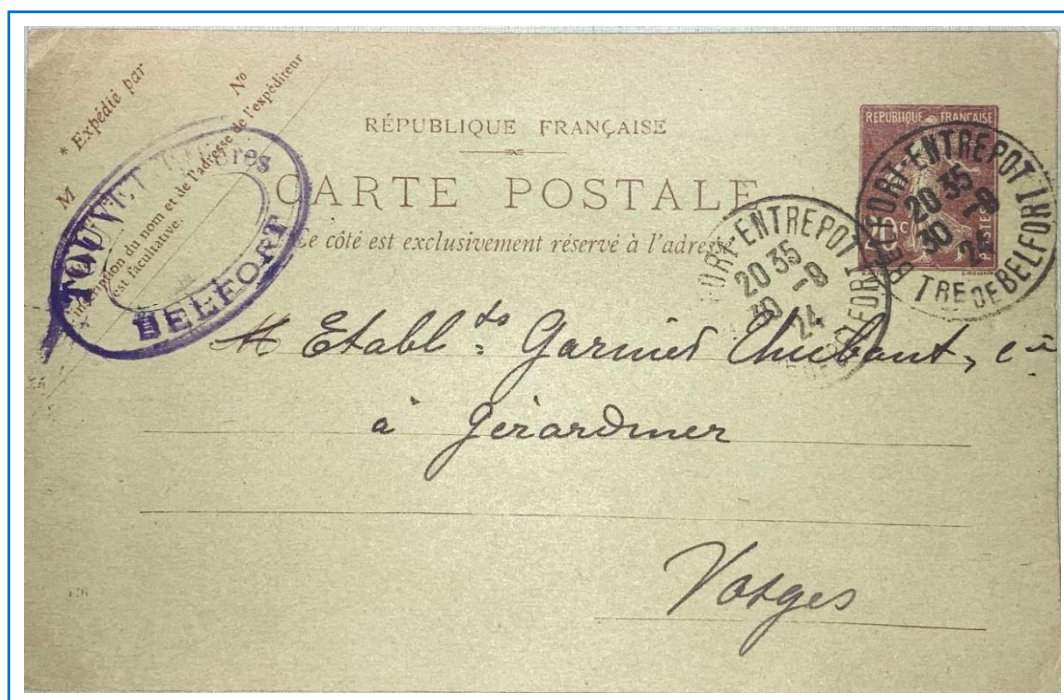 * Expédié par
M
N°
L'inscription du nom et de l'adresse de l'expéditeur
est facultative.
TOUVET Frères
BELFORT
RÉPUBLIQUE FRANÇAISE
CARTE POSTALE
Ce côté est exclusivement réservé à l'adresse.
RÉPUBLIQUE FRANÇAISE
10c
POSTES
BELFORT-ENTREPOT
20 35
30 -8
24
TRE DE BELFORT
FORT-ENTREPOT
20 35
30 -8
24
BELFORT
M Etabl.ts Garnier Thiebaut, Cie
à Gérardmer
Vosges